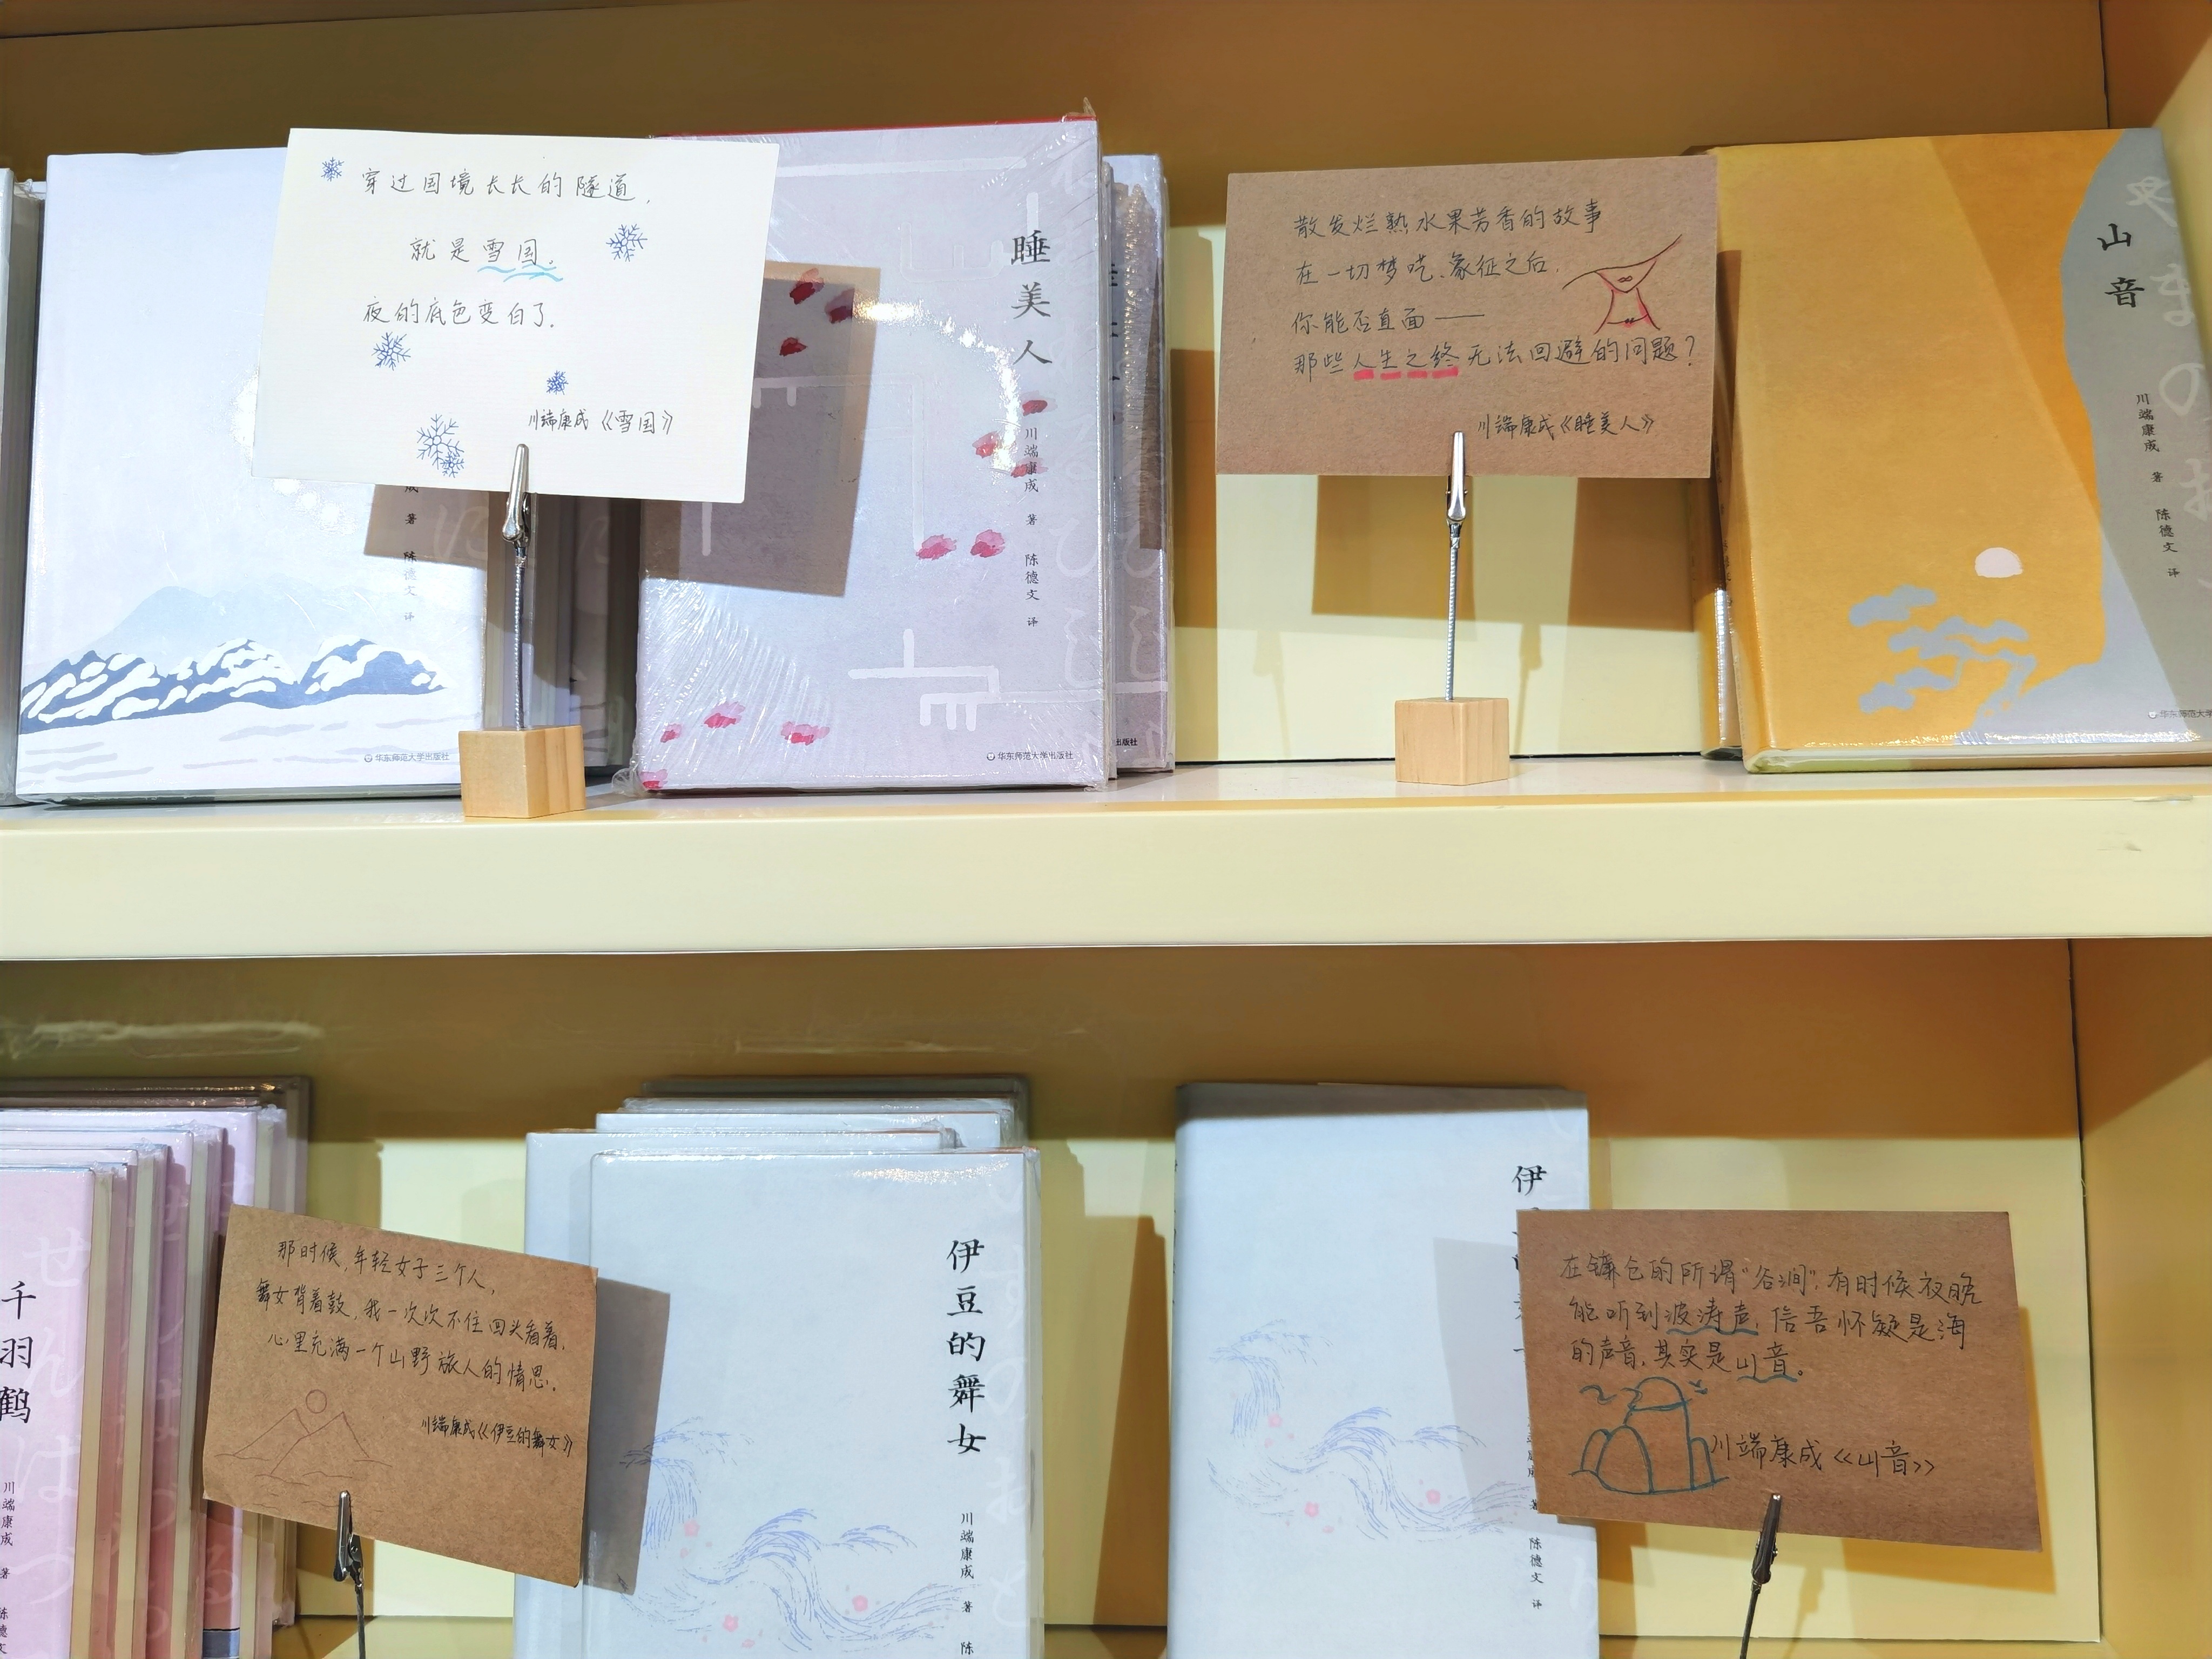 穿过国境长长的隧道,
就是雪国。
夜的底色变白了.
川端康成《雪国》
成 著 陈德文 译
华东师范大学出版社
睡美人
川端康成 著 陈德文 译
华东师范大学出版社
散发烂熟水果芳香的故事
在一切梦呓、象征之后.
你能否直面——
那些人生之终无法回避的问题？
川端康成《睡美人》
山音
川端康成 著 陈德文 译
华东师范大学
千羽鹤
せんばづ
川端康成 著 陈德文
那时候,年轻女子三个人,
舞女背着鼓,我一次次不住回头看着.
心里充满一个山野旅人的情思.
川端康成《伊豆的舞女》
伊豆的舞女
川端康成 著 陈
伊
陈德文 译
在镰仓的所谓“谷涧”,有时候夜晚
能听到波涛声,信吾怀疑是海
的声音,其实是山音。
川端康成《山音》